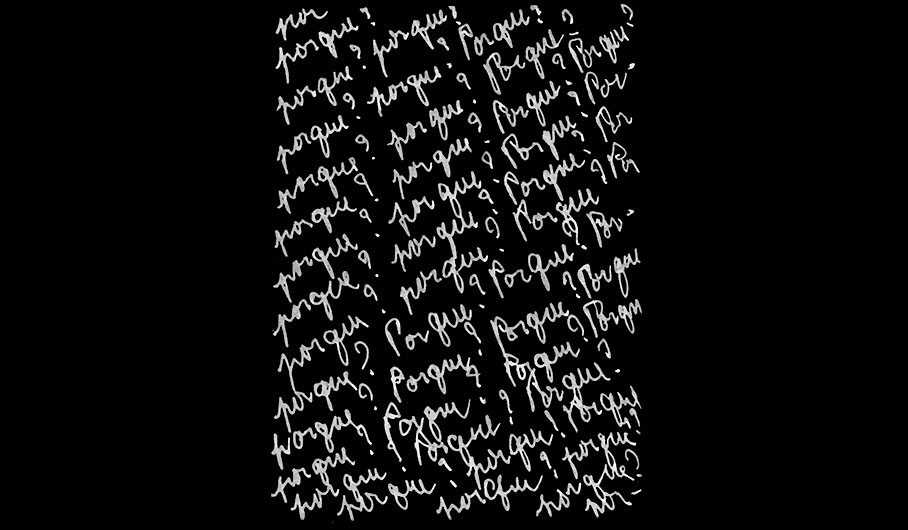 por
porque? porque? Porque? ?
porque? porque? Porque? Porque?
porque? porque? Porque? Por-
porque? porque? Porque? Por
porque? porque? Porque? Por
porque? porque? Porque? Por-
porque? porque? Porque? Porque
porque? Porque? Porque? Porque
porque? Porque? Porque?
porque? Porque? Porque? Porque
porque? Porque? porque? porque?
porque porque porque porque?
por-